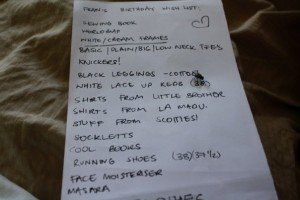 FRAN'S BIRTHDAY WISH LIST.
SEWING BOOK
WORLDMAP
WHITE/CREAM FRAMES
BASIC/PLAIN/BIG/LOW NECK TEES
KNICKERS!
BLACK LEGGINGS - COTTON
WHITE LACE UP KEDS (38)
SHIRTS FROM LITTLE BROTHER
SHIRTS FROM LA MADU.
STUFF FROM SCOTTIES!
SOCKLETTS
COOL BOOKS
RUNNING SHOES (38)(37½)
FACE MOISTERISER
MASARA